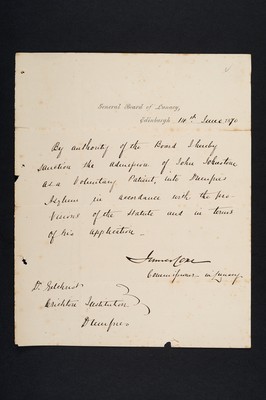 General Board of Lunacy,
Edinburgh, 14th June 1870
By authority of the Board I hereby
sanction the admission of John Johnstone
as a Voluntary Patient, into Dumfries
Asylum in accordance with the pro-
visions of the Statute and in terms
of his application –
James Coxe
Commissioner in Lunacy.
Dr. Gilchrist
Crichton Institution
Dumfries